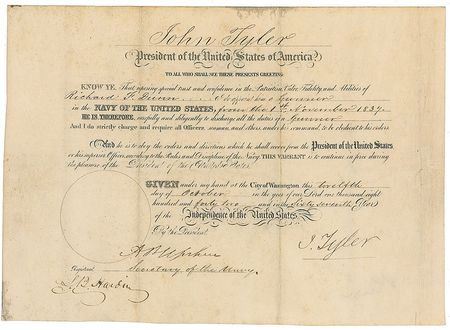 John Tyler
President of the United States of America
TO ALL WHO SHALL SEE THESE PRESENTS GREETING
KNOW YE, That reposing special trust and confidence in the Patriotism, Valor, Fidelity and Abilities of
Richard I appoint him a Gunner
in the NAVY OF THE UNITED STATES, from the 1st November 1837.
HE IS THEREFORE, carefully and diligently to discharge all the duties of a Gunner
And I do strictly charge and require all Officers, seamen, and others, under his command, to be obedient to his orders
And he is to obey the orders and directions which he shall receive from the President of the United States
or his superior Officer, according to the Rules and Discipline of the Navy. THIS WARRANT is to continue in force during
the pleasure of the President of the United States
GIVEN under my hand at the City of Washington this twelfth
day of October in the year of our Lord one thousand eight
hundred and forty two and in the Sixty seventh Year
of the Independence of the United States
By the President
J. Tyler
A. P. Upshur
Registered Secretary of the Navy.
Hardin